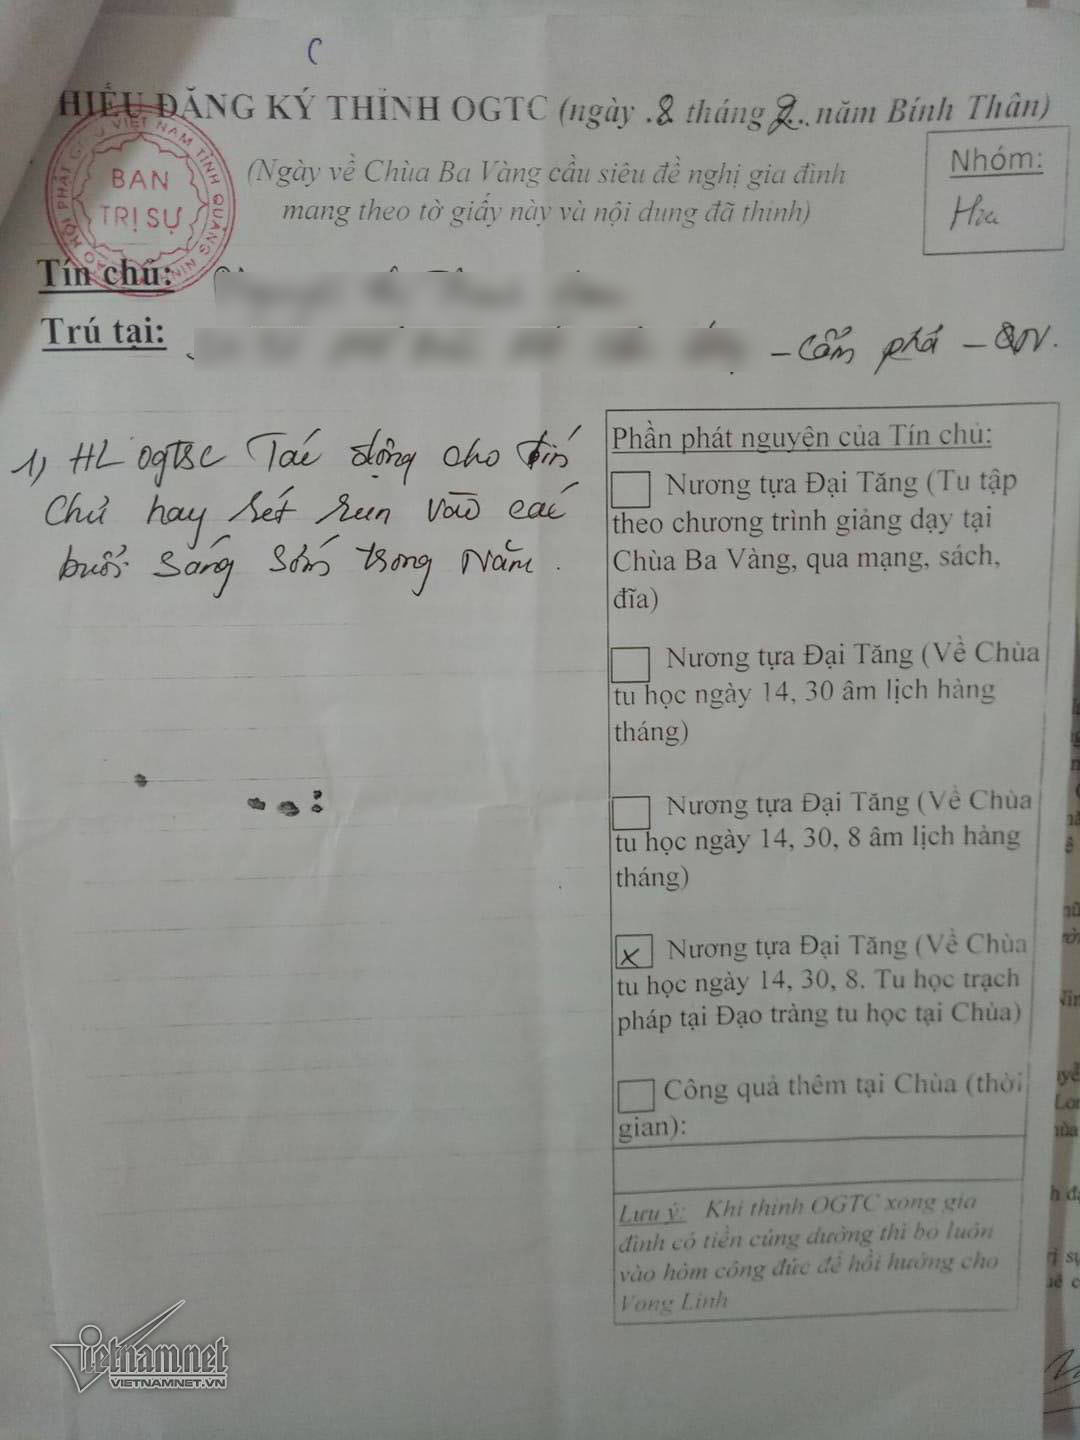 HIẾU ĐĂNG KÝ THỈNH OGTC (ngày .8 tháng 2.. năm Bính Thân)
(Ngày về Chùa Ba Vàng cầu siêu đề nghị gia đình
mang theo tờ giấy này và nội dung đã thỉnh)
Nhóm:
BAN
TRỊ SỰ
Tín chủ:
Trú tại: - Cẩm phả - QN.
1) HL OGTSC Tác động cho tín
Chủ hay rét run vào các
buổi sáng sớm trong Năm.
Phần phát nguyện của Tín chủ:
Nương tựa Đại Tăng (Tu tập
theo chương trình giảng dạy tại
Chùa Ba Vàng, qua mạng, sách,
đĩa)
Nương tựa Đại Tăng (Về Chùa
tu học ngày 14, 30 âm lịch hàng
tháng)
Nương tựa Đại Tăng (Về Chùa
tu học ngày 14, 30, 8 âm lịch hàng
tháng)
x Nương tựa Đại Tăng (Về Chùa
tu học ngày 14, 30, 8. Tu học trạch
pháp tại Đạo tràng tu học tại Chùa)
Công quả thêm tại Chùa (thời
gian):
Lưu ý: Khi thỉnh OGTC xong gia
đình có tiền cúng dường thì bỏ luôn
vào hòm công đức để hồi hướng cho
Vong Linh
Vietnam.net
VIETNAMNET.VN